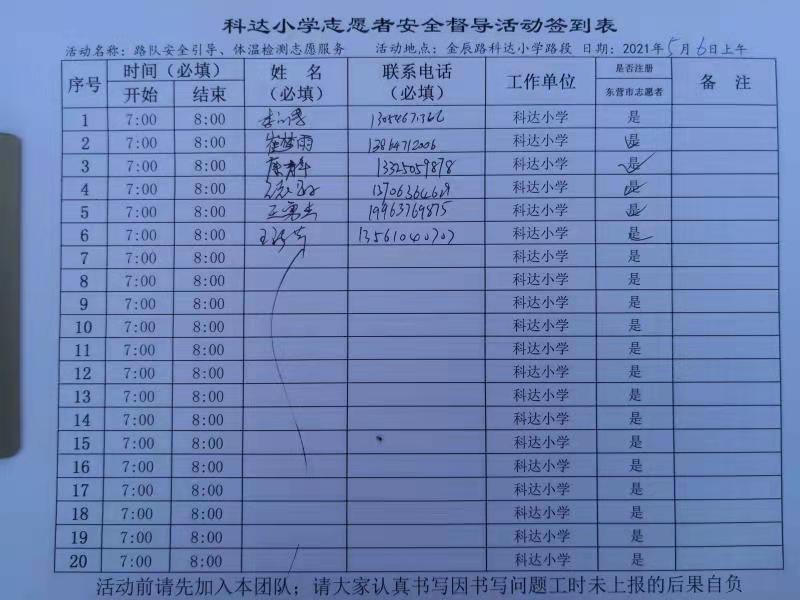 科达小学志愿者安全督导活动签到表
活动名称：路队安全引导、体温检测志愿服务 活动地点：金辰路科达小学路段 日期：2021年5月6日上午
序号 时间（必填） 姓 名（必填） 联系电话（必填） 工作单位 是否注册东营市志愿者 备 注
开始 结束
1 7:00 8:00 科达小学 是
2 7:00 8:00 崔梦雨 13864712006 科达小学 是
3 7:00 8:00 13325059878 科达小学 是
4 7:00 8:00 13706364629 科达小学 是
5 7:00 8:00 王勇杰 19963769875 科达小学 是
6 7:00 8:00 13561040707 科达小学 是
7 7:00 8:00 科达小学 是
8 7:00 8:00 科达小学 是
9 7:00 8:00 科达小学 是
10 7:00 8:00 科达小学 是
11 7:00 8:00 科达小学 是
12 7:00 8:00 科达小学 是
13 7:00 8:00 科达小学 是
14 7:00 8:00 科达小学 是
15 7:00 8:00 科达小学 是
16 7:00 8:00 科达小学 是
17 7:00 8:00 科达小学 是
18 7:00 8:00 科达小学 是
19 7:00 8:00 科达小学 是
20 7:00 8:00 科达小学 是
活动前请先加入本团队；请大家认真书写因书写问题工时未上报的后果自负